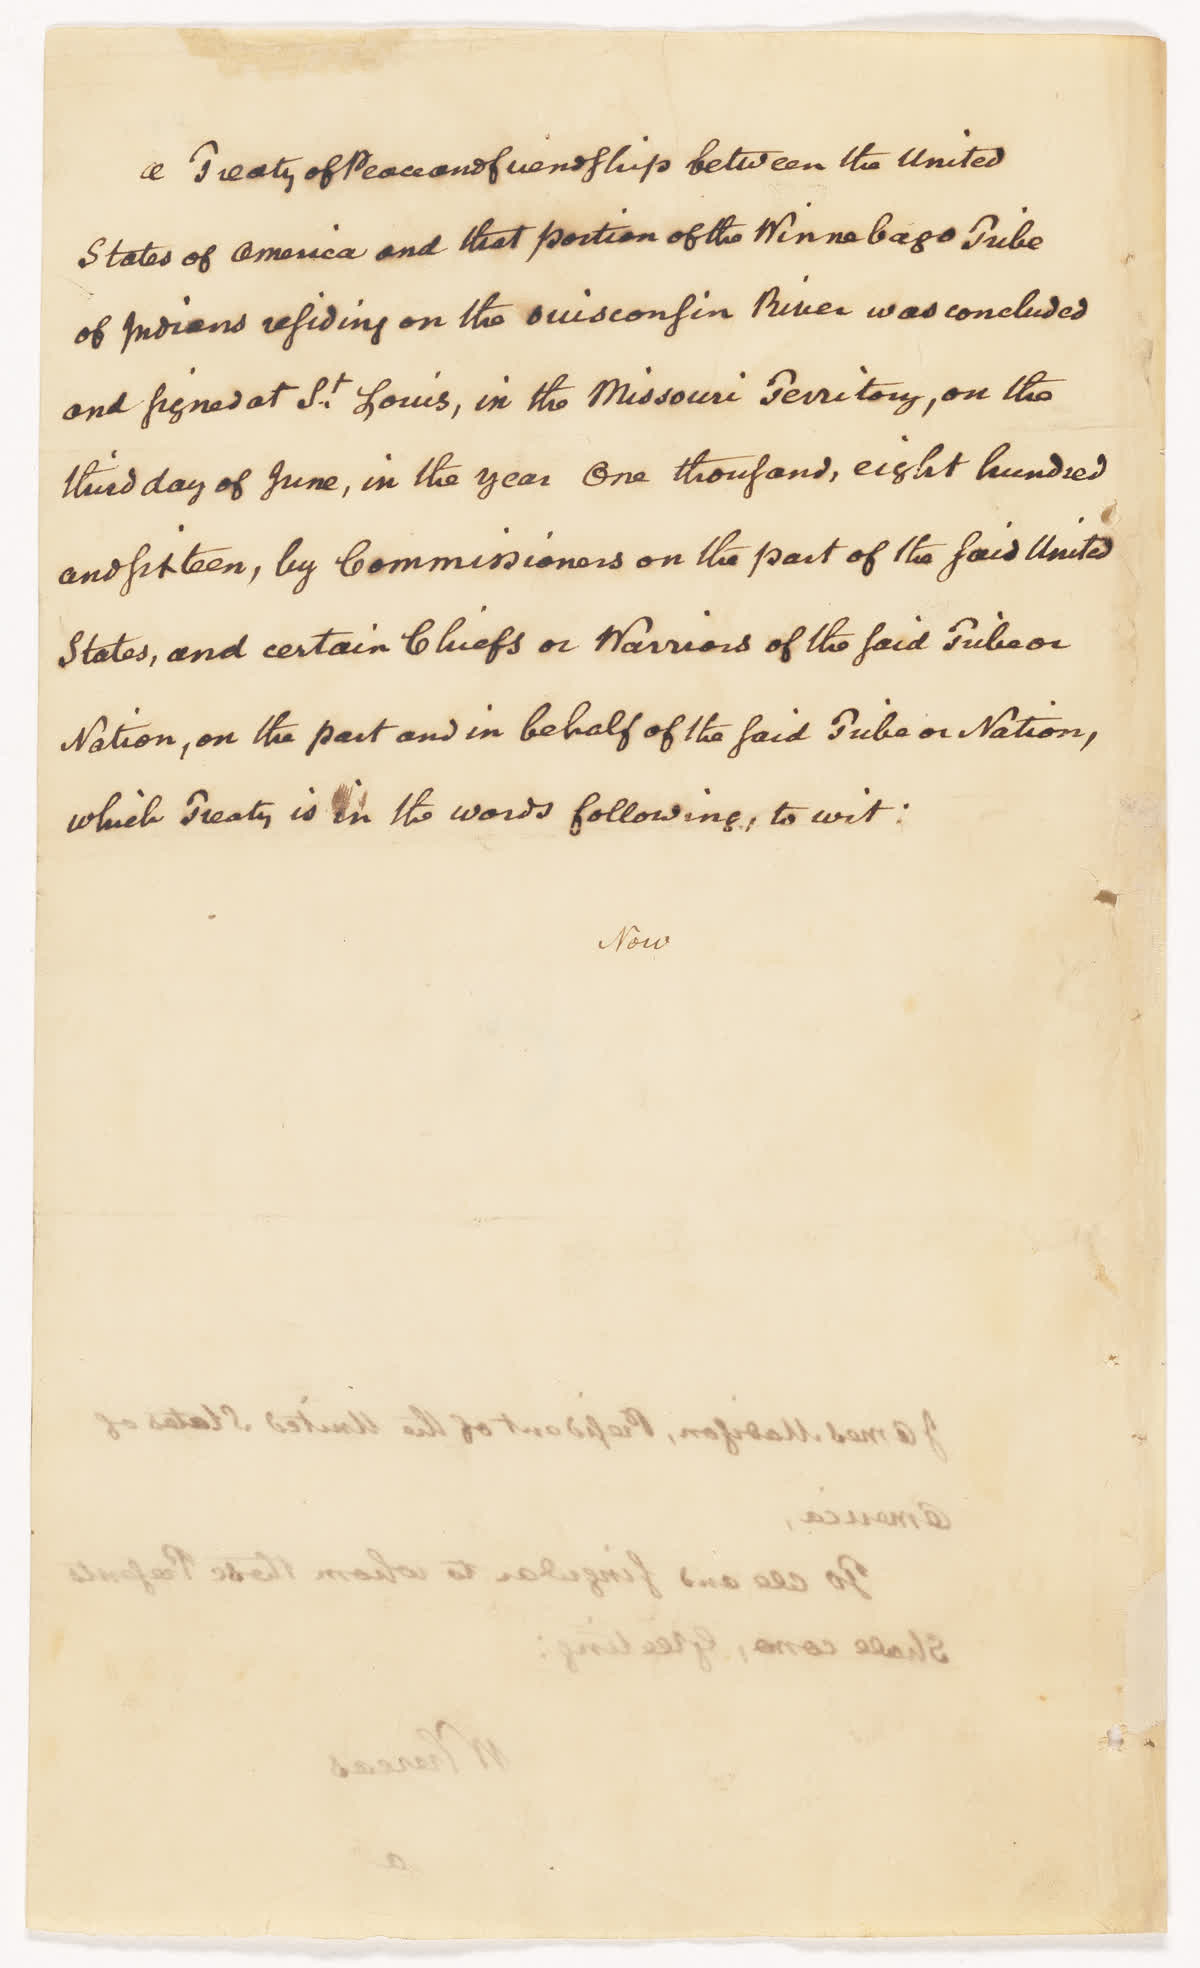 a Treaty of Peace and friendship between the United
States of America and that portion of the Winnebago Tribe
of Indians residing on the Ouisconsin River was concluded
and signed at St. Louis, in the Missouri Territory, on the
third day of June, in the year One thousand, eight hundred
and sixteen, by Commissioners on the part of the said United
States, and certain Chiefs or Warriors of the said Tribe or
Nation, on the part and in behalf of the said Tribe or Nation,
which Treaty is in the words following, to wit:
Now
James Madison, President of the United States of
America,
To all and singular to whom these Presents
Shall come, Greeting:
Whereas
a